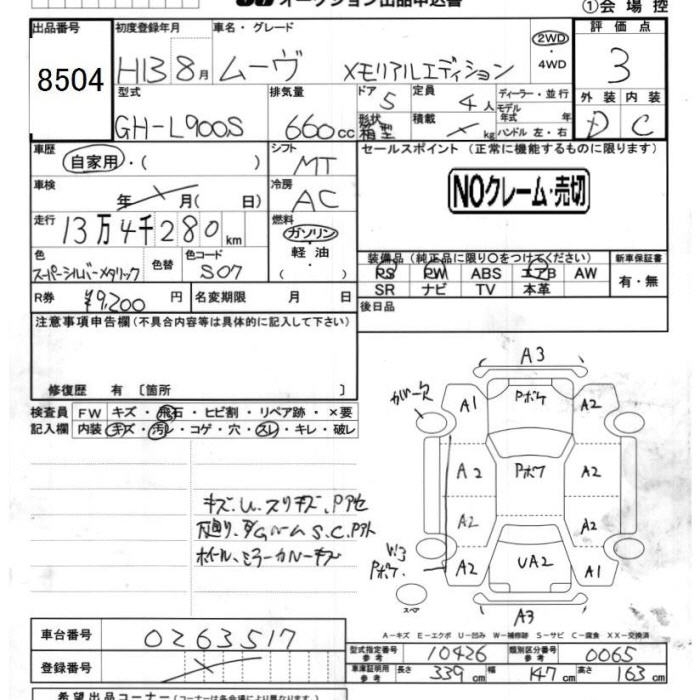 オークション出品申込書
①会場控
出品番号 初度登録年月 車名・グレード 評価点
8504 H13 8月 ムーヴ メモリアルエディション 2WD・4WD 3
型式 排気量 ドア 5 定員 4人 ディーラー・並行 外装 内装
GH-L900S 660cc 形状 箱型 積載 kg モデル年式 年 ハンドル 左・右 D C
車歴 自家用・( ) シフト MT セールスポイント (正常に機能するものに限ります)
車検 年 月( 日) 冷房 AC NOクレーム・売切
走行 13万4千280km 燃料 ガソリン・軽油・( )
色 スーパーシルバーメタリック 色替 色コード S07 装備品 (純正品に限り○をつけてください) 新車保証書
PS PW ABS エアB AW 有・無
SR ナビ TV 本革
R券 ¥9,200円 名変期限 月 日 後日品
注意事項申告欄(不具合内容等は具体的に記入して下さい)
修復歴 有 [箇所 ]
検査員記入欄 FW キズ・飛石・ヒビ割・リペア跡・×要
内装 キズ・汚レ・コゲ・穴・スレ・キレ・破レ
A3
カバー欠 A1 Pボケ A2
A2 Pボケ A2
A2 A2
W3 Pボケ A2 UA2 A1
スペア
A3
キズ、U、スリキズ、Pアセ
ホイール、ミラーカバーキズ
A-キズ E-エクボ U-凹み W-補修跡 S-サビ C-腐食 XX-交換済
車台番号 0263517
登録番号
型式指定番号 参考 10426 類別区分番号 参考 0065
車庫証明用 参考 長さ 339cm 幅 147cm 高さ 163cm
希望出品コーナー(コーナーは各会場により異なります。)